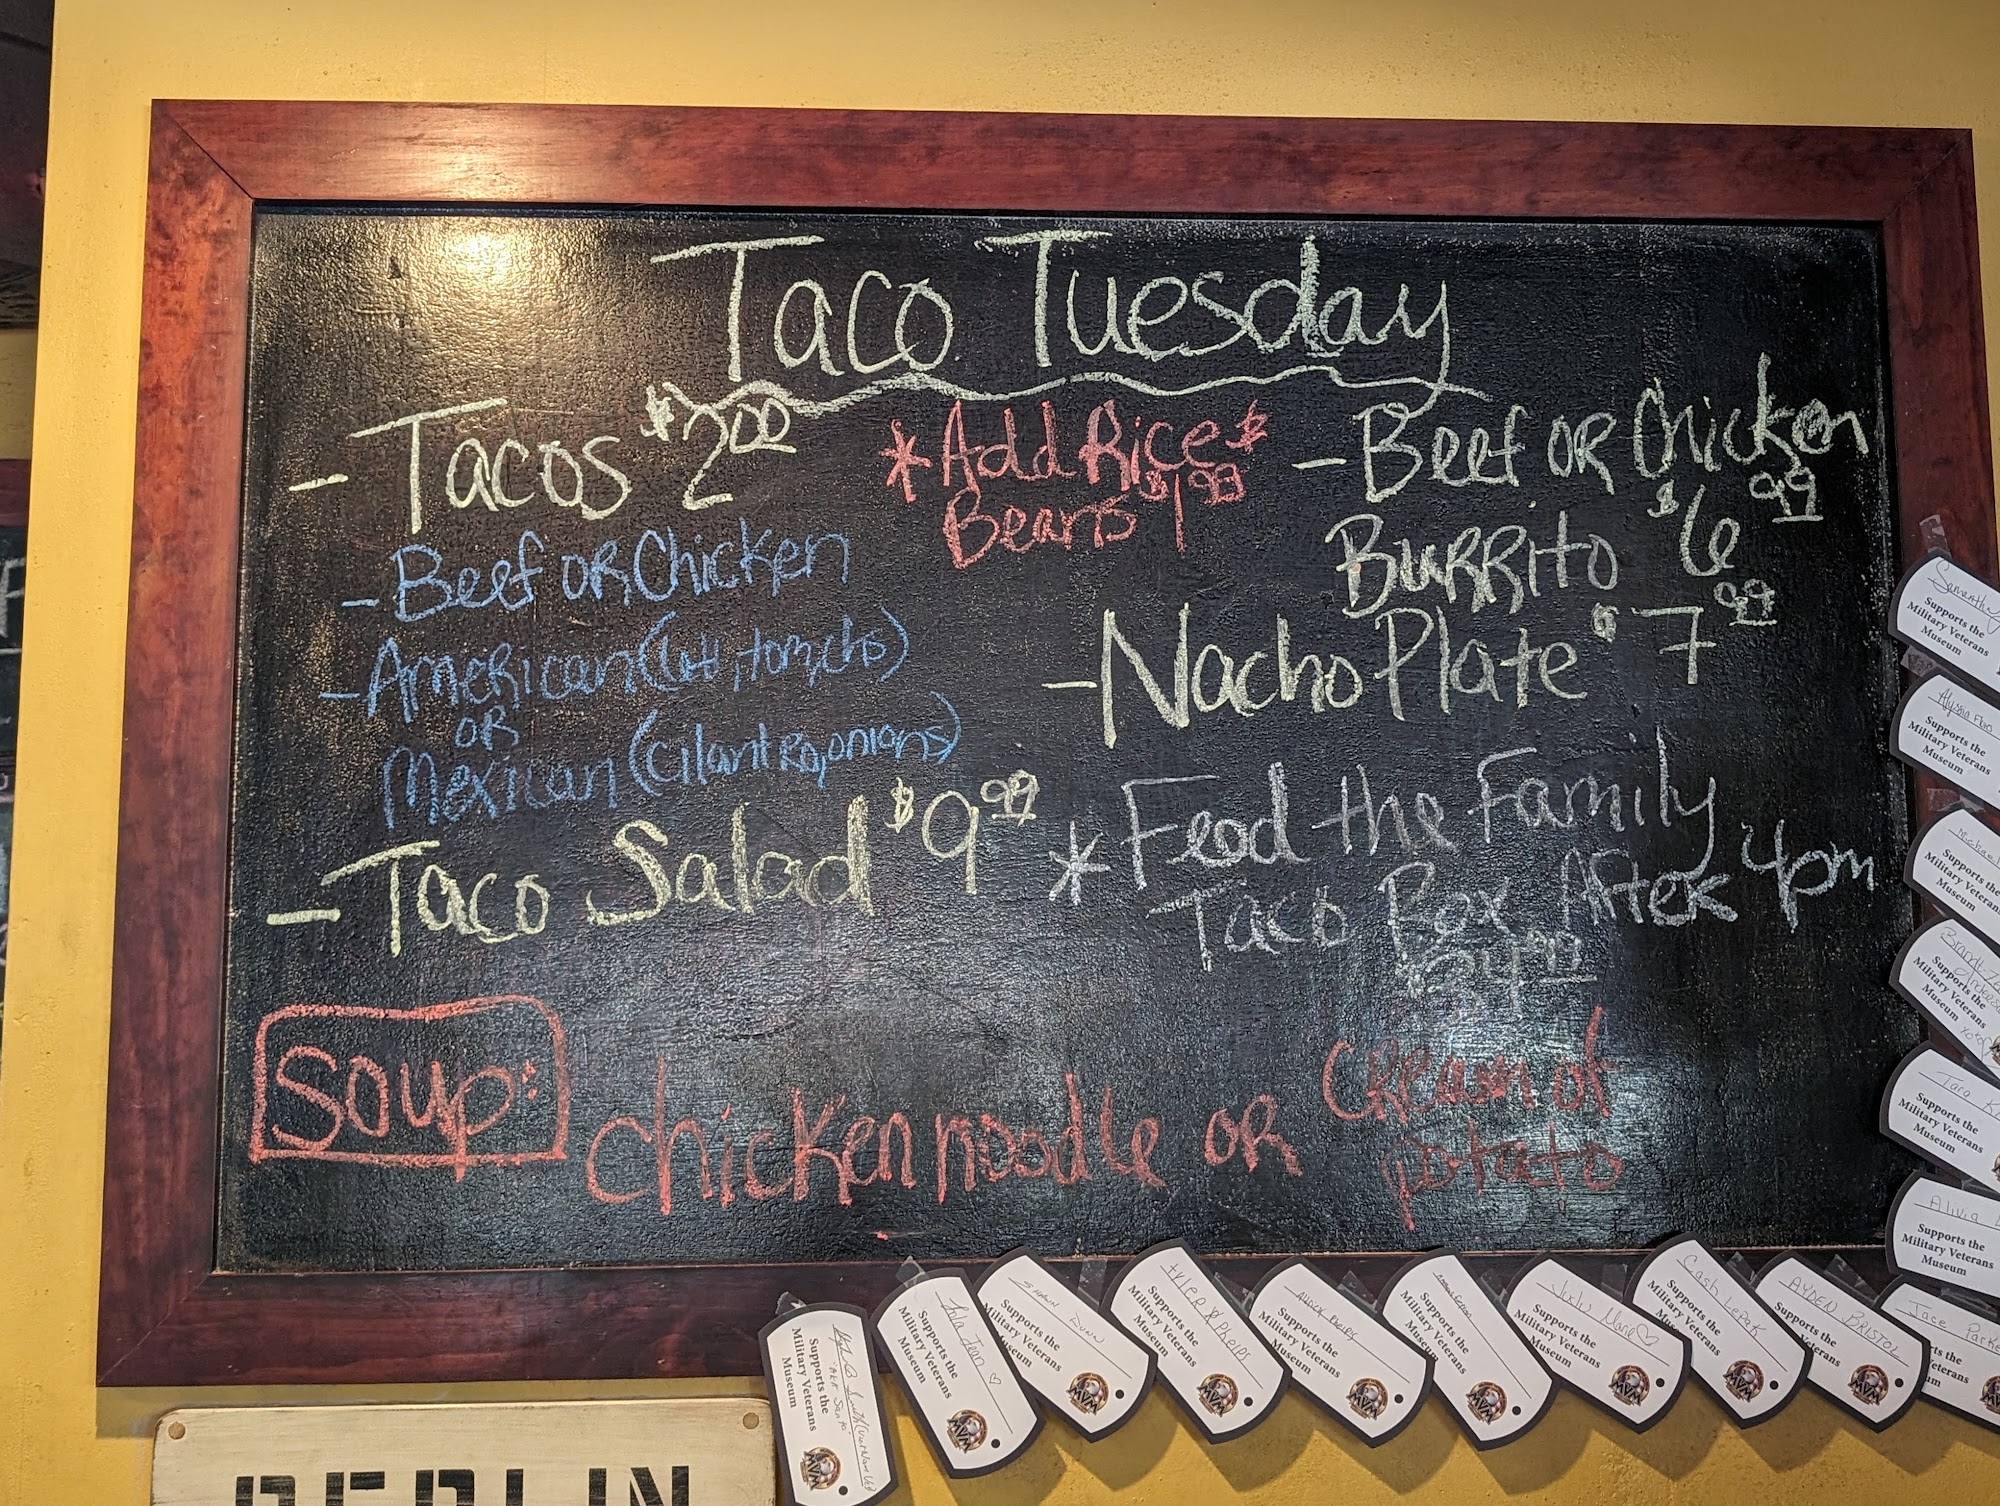 Taco Tuesday
- Tacos $2.00
- Beef or Chicken
- American (lett, tom, chs)
or
Mexican (cilantro, onions)
- Taco Salad $9.99
* Add Rice &
Beans $1.99
- Beef or Chicken
Burrito $6.99
- Nacho Plate $7.99
* Feed the Family
Taco Box After 4pm
$34.99
Soup:
chicken noodle or
cream of
potato
Samantha
Supports the
Military Veterans
Museum
Alyssia
Supports the
Military Veterans
Museum
Michael
Supports the
Military Veterans
Museum
Supports the
Military Veterans
Museum xoxo
Tara
Supports the
Military Veterans
Museum
Alivia
Supports the
Military Veterans
Museum
Jace Parke
Veterans
um
AYDEN BRISTOL
Supports the
Veterans
Museum
Cash LePak
Supports the
Military Veterans
Museum
Marie
Supports the
Military Veterans
Museum
Supports the
Military Veterans
Museum
Supports the
Military Veterans
Museum
TYLER Phelps
Supports the
Military Veterans
Museum
SHAWN DUNN
Supports the
Military Veterans
Museum
Jean
Supports the
Military Veterans
Museum
Supports the
Military Veterans
Museum
BERLIN